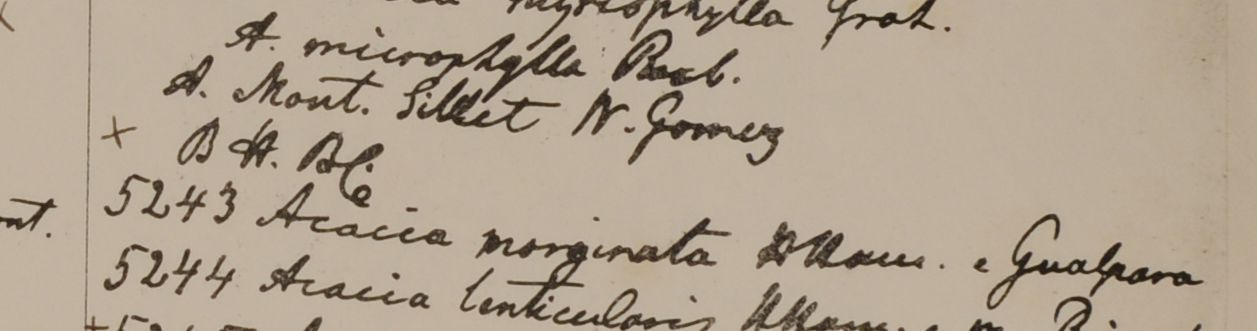 myriophylla Grah.
A. microphylla Roxb.
A. Mont. Sillet W. Gomez
B H. BC
5243 Acacia marginata Ham. e Gualpara
5244 Acacia lenticularis Ham.